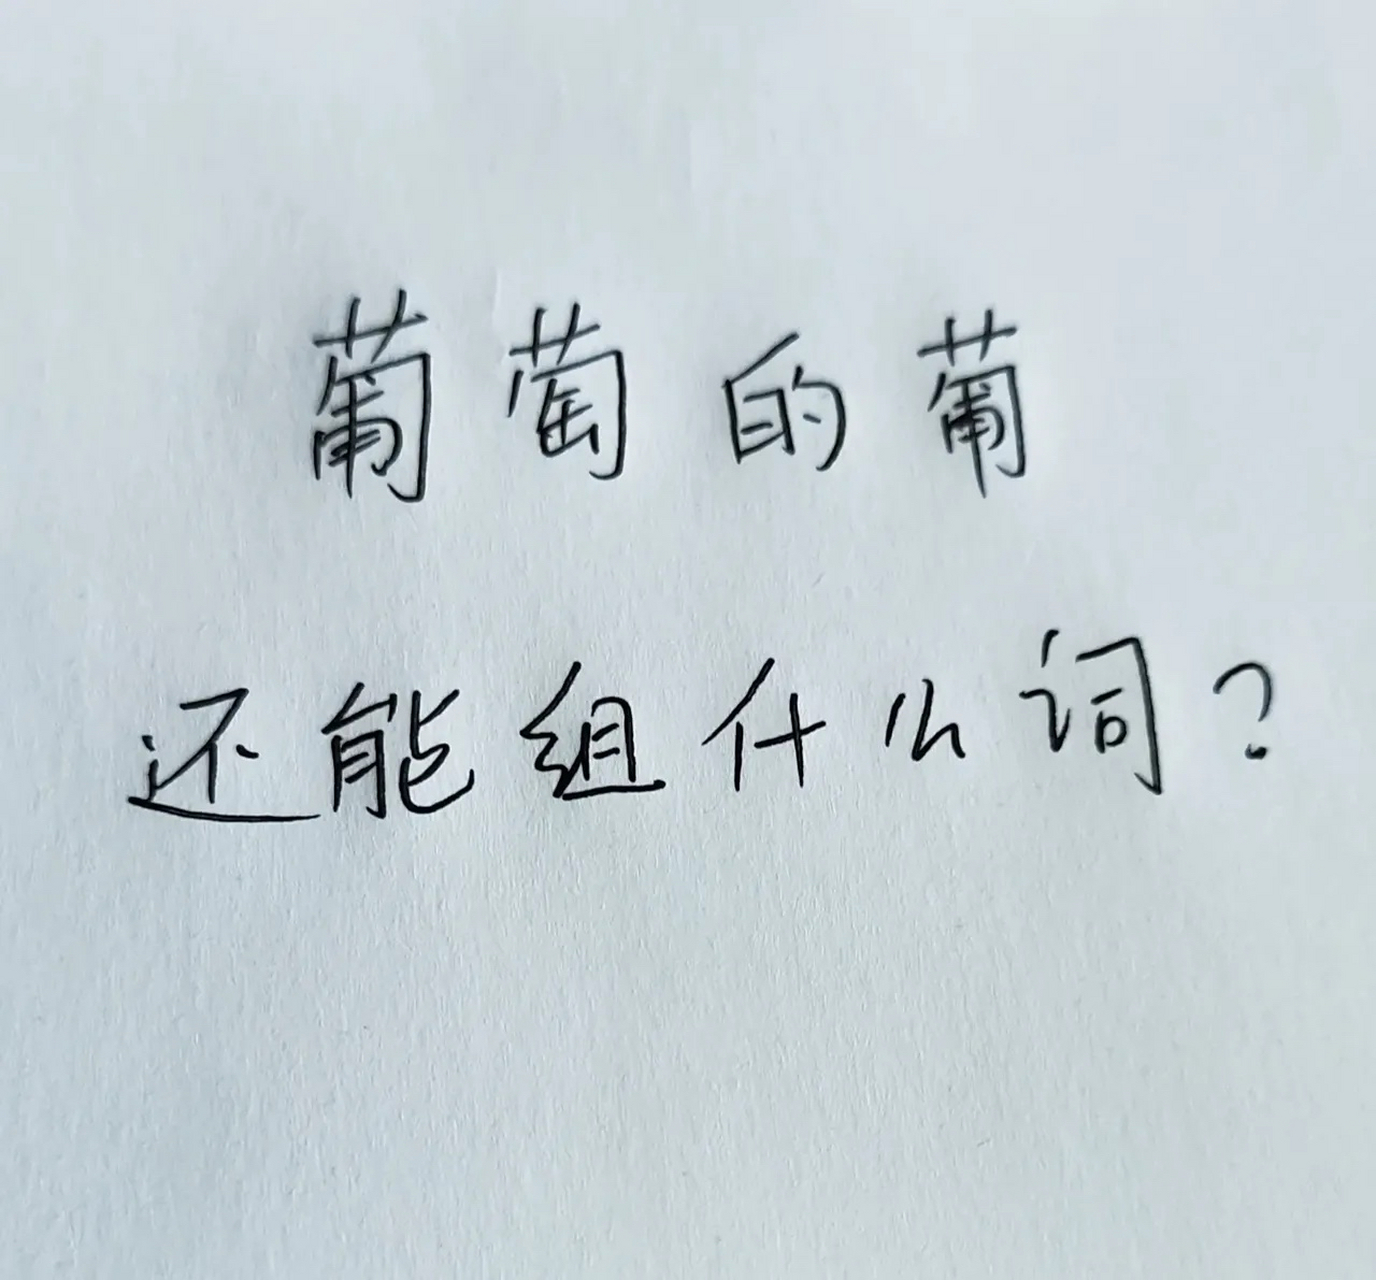 葡萄的葡
还能组什么词?